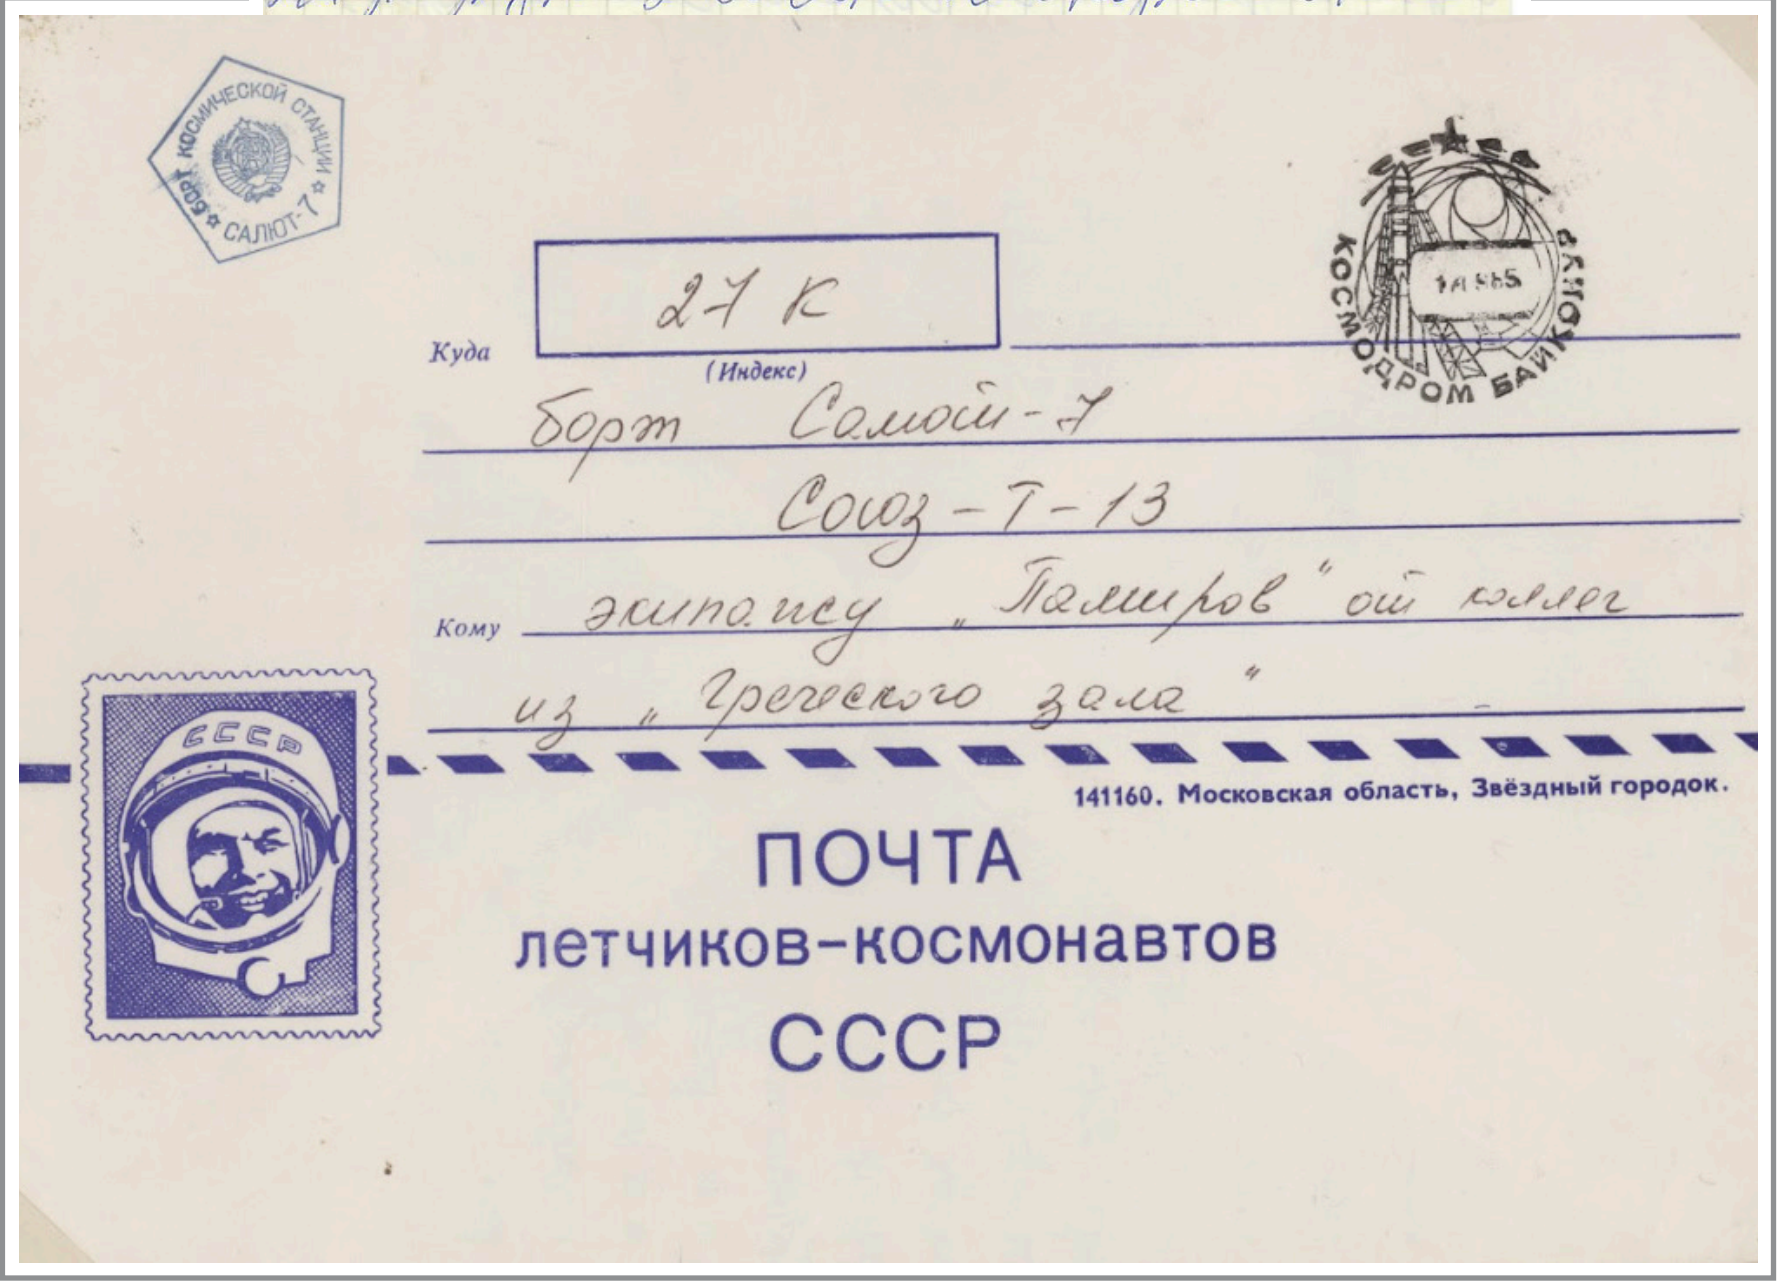 БОРТ КОСМИЧЕСКОЙ СТАНЦИИ
САЛЮТ-7
КОСМОДРОМ БАЙКОНУР
27 К
Куда
(Индекс)
борт Салют-7
Союз-Т-13
Кому экипажу „Памиров" от коллег
из „Греческого зала"
СССР
141160. Московская область, Звёздный городок.
ПОЧТА
летчиков-космонавтов
СССР